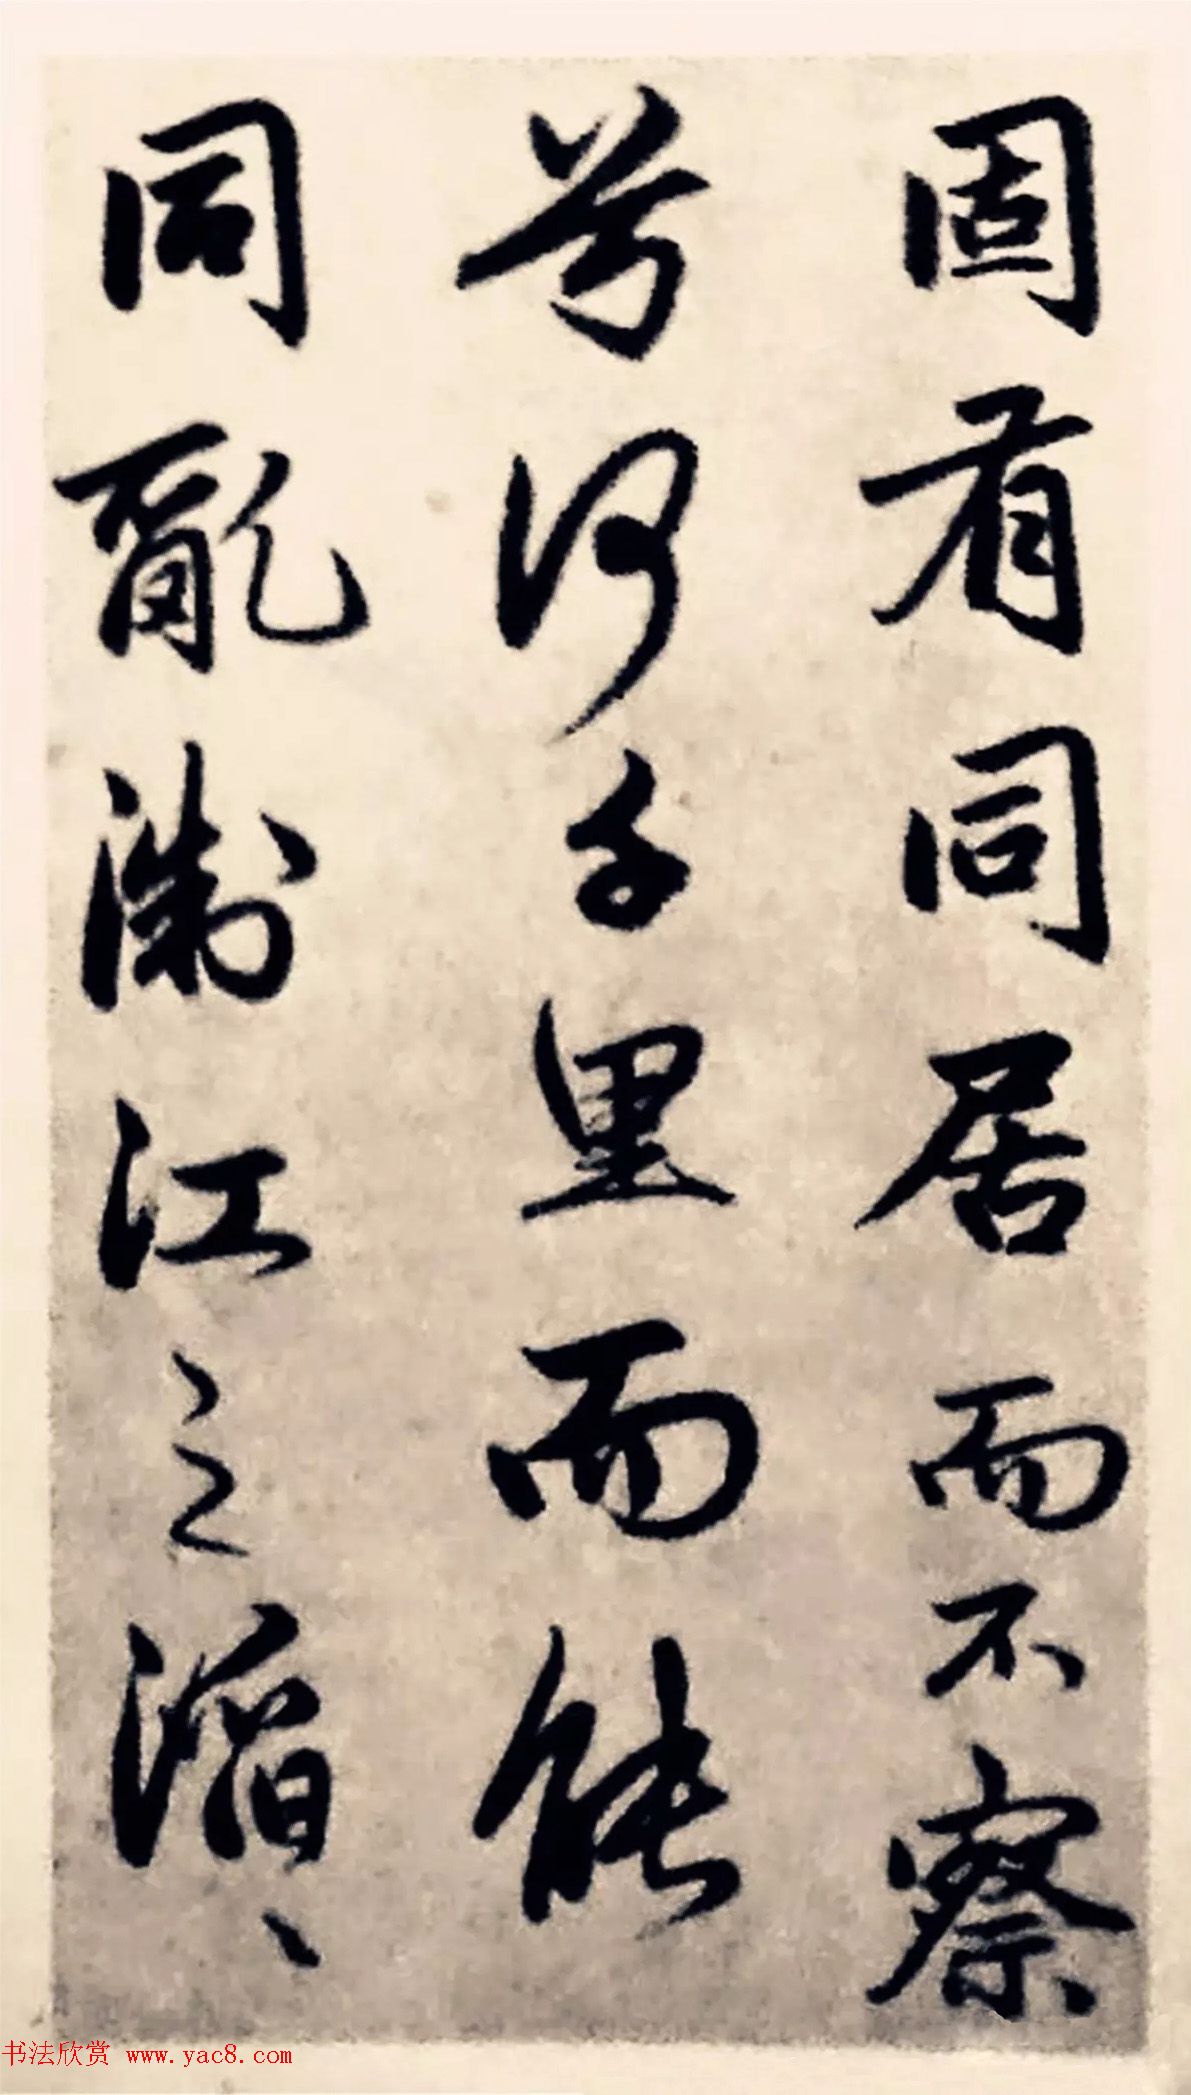 固有同居而不察
兮何千里而能
同亂淛江之滔〻
书法欣赏 www.yac8.com